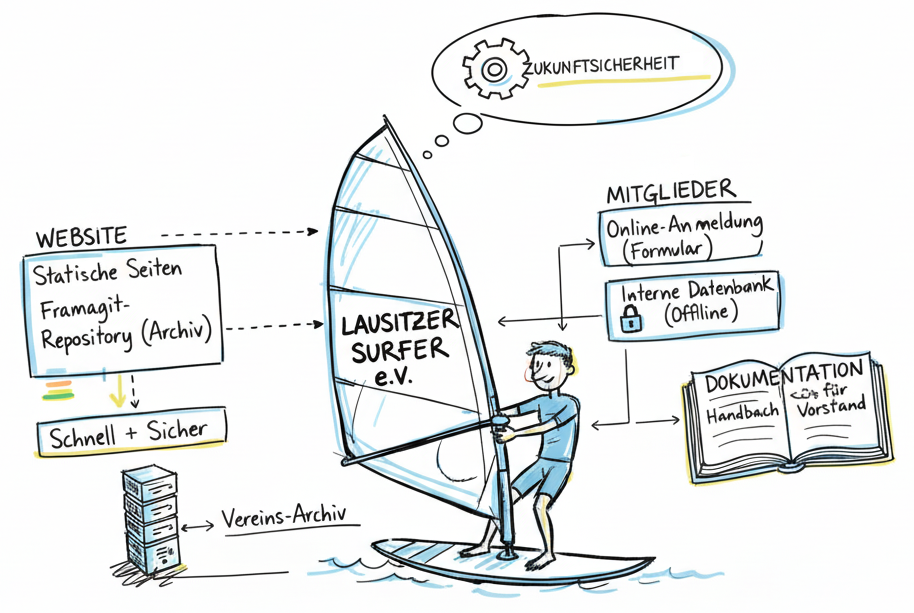 ZUKUNFTSICHERHEIT
WEBSITE
Statische Seiten
Framagit-
Repository (Archiv)
Schnell + Sicher
Vereins-Archiv
LAUSITZER
SURFER
e.V.
MITGLIEDER
Online-Anmeldung
(Formular)
Interne Datenbank
(Offline)
DOKUMENTATION
Handbach
für
Vorstand